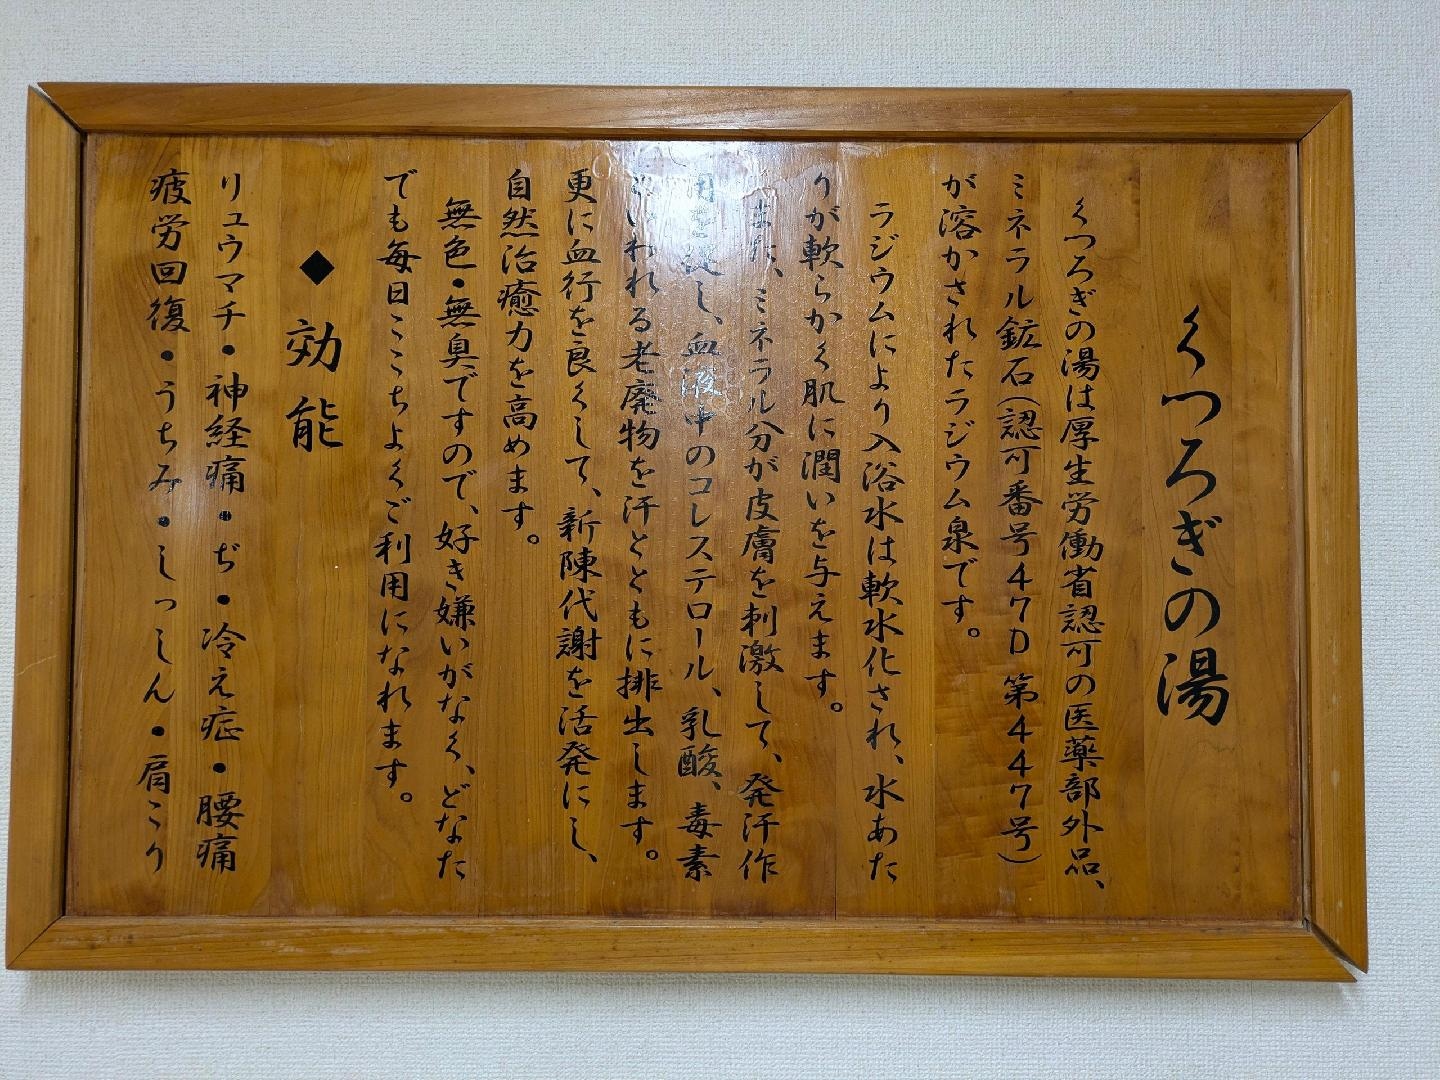 くつろぎの湯
くつろぎの湯は厚生労働省認可の医薬部外品、
ミネラル鉱石(認可番号47D 第447号)
が溶かされたラジウム泉です。
ラジウムにより入浴水は軟水化され、水あた
りが軟らかく肌に潤いを与えます。
また、ミネラル分が皮膚を刺激して、発汗作
用を促し、血液中のコレステロール、乳酸、毒素
といわれる老廃物を汗とともに排出します。
更に血行を良くして、新陳代謝を活発にし、
自然治癒力を高めます。
無色・無臭ですので、好き嫌いがなく、どなた
でも毎日ここちよくご利用になれます。
◆効能
リュウマチ・神経痛・ぢ・冷え症・腰痛
疲労回復・うちみ・しっしん・肩こり